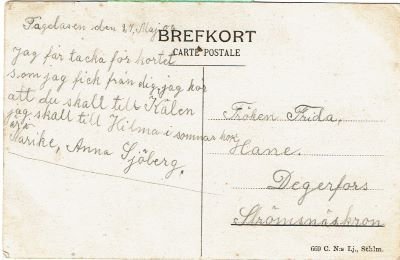 Fagelåsen den 27 Maj 08
BREFKORT
CARTE POSTALE
Jag får tacka för kortet
som jag fick från dig, jag hör
att du skall till Kålen
jag skall till Hilma i sommar hon
Marike, Anna Sjöberg.
Fröken Frida.
Hane.
Degerfors
Strömsnäsbron
669 C. N:s Lj., Sthlm.